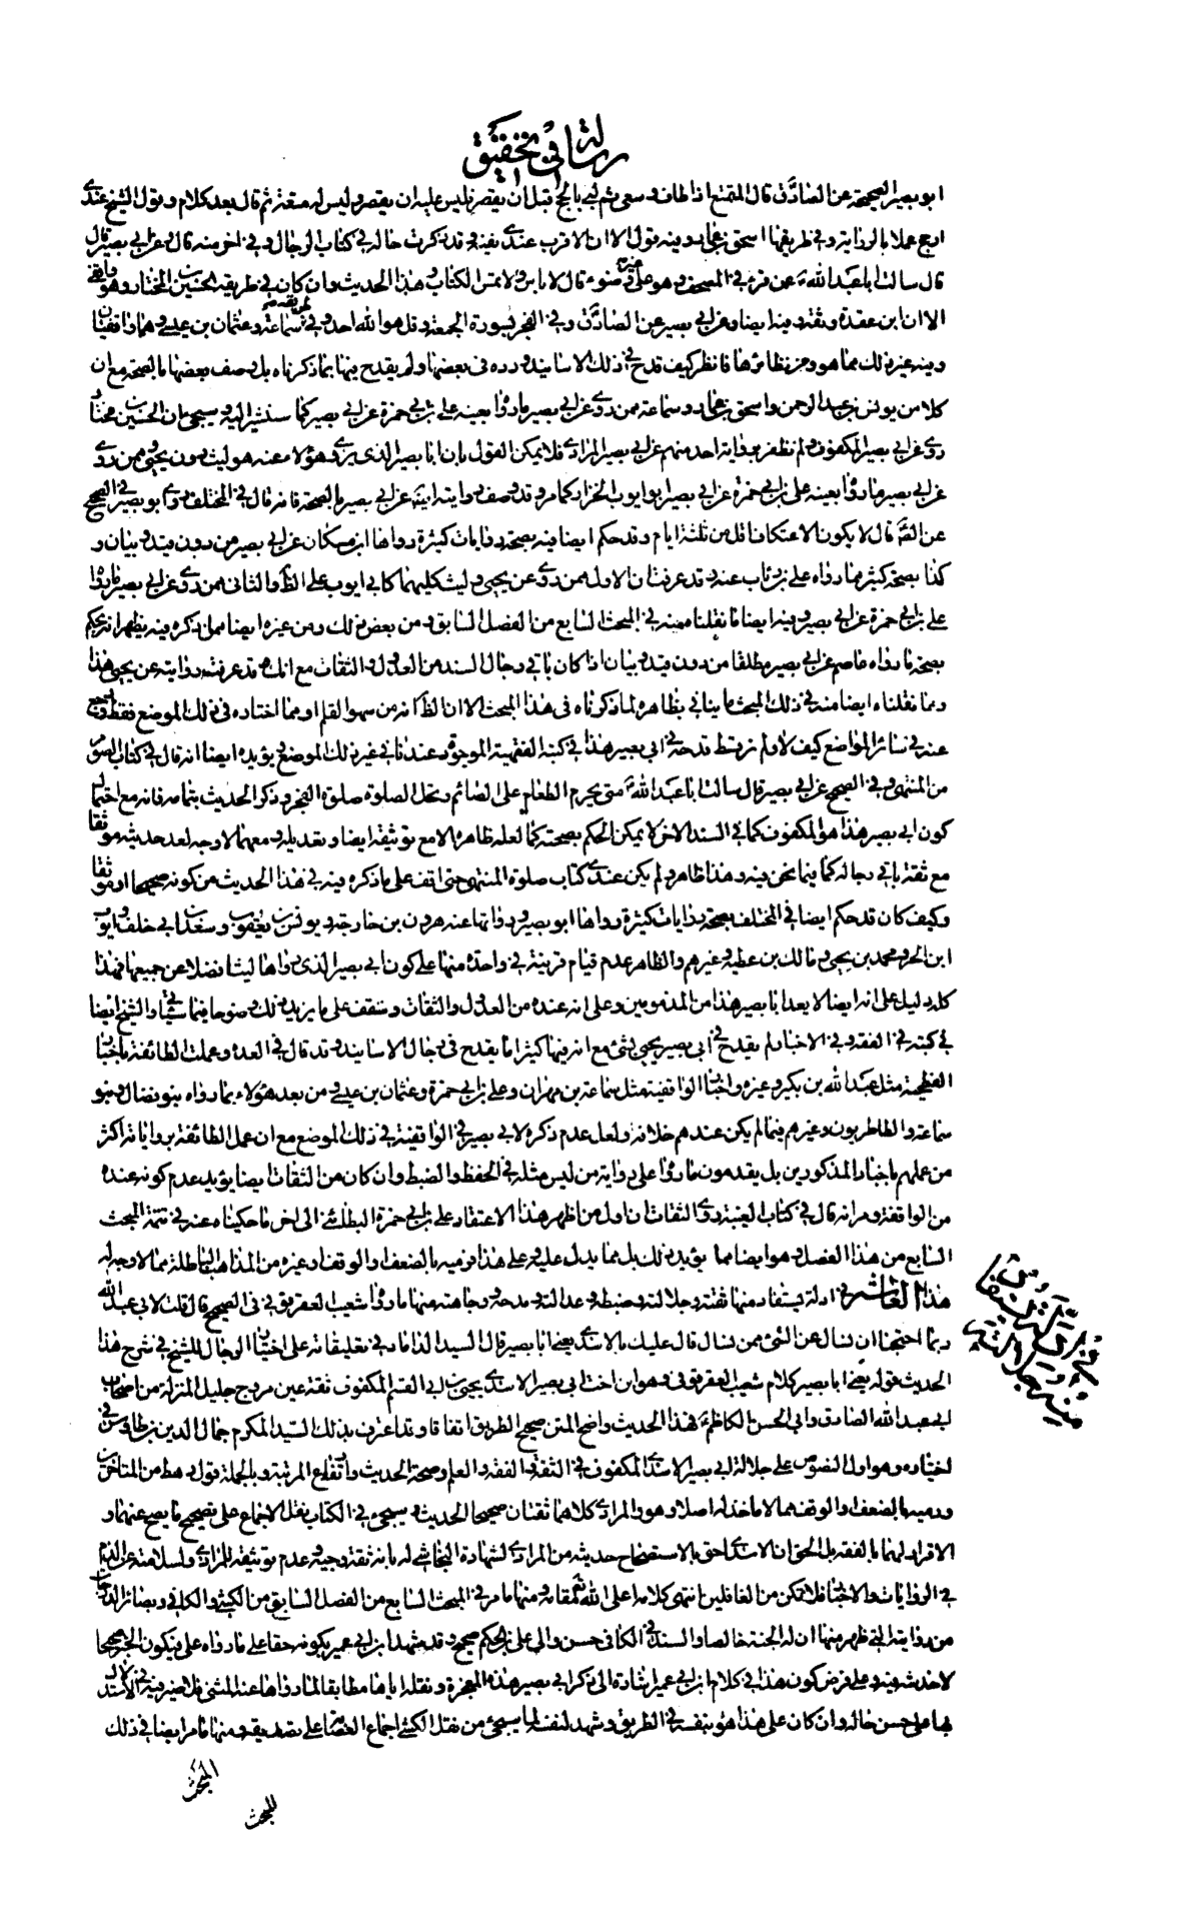 رسالة في تحقيق
ابو بصير الصحيحة عن الصادق قال المتمتع اذا طاف وسعى ثم لبى بالحج قبل ان يقصر فليس عليه ان يقصر وليس له متعة ثم قال بعد كلام وقول الشيخ عندي
ارجح عملا بالرواية وفي طريقها اسحق بن عمار وفيه قول الا ان الاقرب عندي ثقته وقد ذكرت حاله في كتاب الرجال وفي اخر منه قال وعن ابي بصير قال
قال سالت ابا عبد الله عمن قرء في المصحف وهو على غير وضوء قال لا باس ولا تمس الكتاب وهذا الحديث وان كان في طريقه الحسين بن المختار وهو واقفي
الا ان ابن عقدة وثقه وفيه ايضا وعن ابي بصير عن الصادق وفي الفجر بسورة الجمعة وقل هو الله احد وفي طريقه سماعة وعثمان بن عيسى وهما واقفيان
وفيه غير ذلك مما هو من نظائرها فانظر كيف قدح في ذلك الاسانيد ورده في بعضها ولم يقدح فيها بما ذكرناه بل وصف بعضها بالصحة مع ان
كلا من يونس بن عبد الرحمن واسحق بن عمار وسماعة ممن روى عن ابي بصير ما رواه بعينه علي بن ابي حمزة عن ابي بصير كما سنشير اليه وسيجيء ان الحسين بن مختار
روى عن ابي بصير المكفوف ولم نظفر برواية احد منهم عن ابي بصير المرادي فلا يمكن القول بان ابا بصير الذي يروي هؤلاء عنه هو ليث دون يحيى وممن روى
عن ابي بصير ما رواه بعينه علي بن ابي حمزة عن ابي بصير ابو ايوب الخزاز كما مر وقد وصف روايته ايضا عن ابي بصير بالصحة فانه قال في المختلف وروى ابو بصير في الصحيح
عن الصادق قال لا يكون الاعتكاف اقل من ثلثة ايام وقد حكم ايضا فيه بصحة روايات كثيرة رواها ابن مسكان عن ابي بصير من دون قيد وبيان و
كذا بصحة كثير مما رواه علي بن رئاب عنه وقد عرفت ان الاول ممن روى عن يحيى وليث كليهما كابي ايوب على الظاهر والثاني ممن روى عن ابي بصير ما رواه
علي بن ابي حمزة عن ابي بصير وفيه ايضا ما نقلنا منه في المبحث السابع من الفصل السابق ومن بعض ذلك ومن غيره ايضا مما ذكره فيه يظهر انه يحكم
بصحة ما رواه عاصم عن ابي بصير مطلقا من دون قيد وبيان اذا كان باقي رجال السند من العدول والثقات مع انك قد عرفت روايته عن يحيى هذا
وما نقلناه ايضا منه في ذلك المبحث ما ينافي بظاهره لما ذكرناه في هذا المبحث الا ان الظاهر انه من سهو القلم او مما اختاره في ذلك الموضع فقط ورجع
عنه في سائر المواضع كيف لا ولم نر قط قدحه في ابي بصير هذا في كتبه الفقهية الموجودة عندنا في غير ذلك الموضع ويؤيده ايضا انه قال في كتاب الصوم
من المنتهى وفي الصحيح عن ابي بصير قال سالت ابا عبد الله متى يحرم الطعام على الصائم وتحل الصلوة صلوة الفجر وذكر الحديث بتمامه فانه مع احتمال
كون ابي بصير هذا هو المكفوف كما في السند الاخر لا يمكن الحكم بصحته كما لعله ظاهره الا مع توثيقه ايضا وتعديله ومعهما لا وجه لعد حديثه موثقا
مع ثقة باقي رجاله كما فيما نحن فيه وهذا ظاهر ولم يكن عندي كتاب صلوة المنتهى حتى اقف على ما ذكره فيه في هذا الحديث من كونه صحيحا او موثقا
وكيف كان قد حكم ايضا في المختلف بصحة روايات كثيرة رواها ابو بصير ورواتها عنه هرون بن خارجة ويونس بن يعقوب وسعدان بن ابي خلف وايوب
ابن الحر ومحمد بن يحيى ومالك بن عطية وغيرهم والظاهر عدم قيام قرينة في واحدة منها على كون ابي بصير الذي رواها ليثا فضلا عن جميعها فهذا
كله دليل على انه ايضا لا يعد ابا بصير هذا من المذمومين وعلى انه عنده من العدول والثقات وستقف على ما يزيد ذلك وضوحا فيما سيأتي والشيخ ايضا
في كتبه في الفقه وفي الاخبار لم يقدح في ابي بصير يحيى بشئ مع انه فيها كثيرا ما يقدح في رجال الاسانيد وقد قال في العدة وعملت الطائفة باخبار
الفطحية مثل عبد الله بن بكير وغيره واخبار الواقفية مثل سماعة بن مهران وعلي بن ابي حمزة وعثمان بن عيسى ومن بعد هؤلاء بما رواه بنو فضال وبنو
سماعة والطاطريون وغيرهم فيما لم يكن عندهم خلافه ولعل عدم ذكره لابي بصير في الواقفية في ذلك الموضع مع ان عمل الطائفة برواياته اكثر
من عملهم باخبار المذكورين بل يقدمون ما رواه على رواية من ليس مثله في الحفظ والضبط وان كان من الثقات ايضا يؤيد عدم كونه عنده
من الواقفة ومر انه قال في كتاب الغيبة روى الثقات ان اول من اظهر هذا الاعتقاد علي بن ابي حمزة البطائني الى اخر ما حكيناه عنه في تتمة المبحث
السابع من هذا الفصل وهو ايضا مما يؤيد ذلك بل مما يدل عليه وعلى هذا فرميه بالضعف او الوقف او غيره من المذاهب الباطلة مما لا وجه له
هذا العاشر في ادلة يستفاد منها ثقته وجلالته وضبطه وعدالته ومدحه ووجاهته منها ما رواه شعيب العقرقوفي في الصحيح قال قلت لابي عبد الله
ربما احتجنا ان نسال عن الشئ فمن نسال قال عليك بالاسدي يعني ابا بصير قال السيد الداماد في تعليقاته على اختيار الرجال للشيخ في شرح هذا
الحديث قوله يعني ابا بصير كلام شعيب العقرقوفي وهو ابن اخت ابي بصير الاسدي يحيى بن ابي القسم المكفوف ثقة عين مروج جليل المنزلة من اصحاب
ابي عبد الله الصادق وابي الحسن الكاظم فهذا الحديث واضح المتن صحيح الطريق اتفاقا وقد اعترف بذلك السيد المكرم جمال الدين بن طاوس في
اختياره وهو اول النصوص على جلالة ابي بصير الاسدي المكفوف في الثقة والفقه والعلم وصحة الحديث وارتفاع المرتبة وبالجملة قول رهط من المتاخرين
ورميه بالضعف والوقف مما لا ماخذ له اصلا وهو والمرادي كلاهما ثقتان صحيحا الحديث وسيجيء في الكتاب نقل الاجماع على تصحيح ما يصح عنهما و
الاقرار لهما بالفقه بل الحق ان الاسدي احق بالاستصحاح حديثه من المرادي لشهادة النجاشي له بانه ثقة وجيه وعدم توثيقه للمرادي ولسلامته عن الذم
في الروايات والاخبار فلا تكن من الغافلين انتهى كلامه اعلى الله مقامه ومنها ما مر في المبحث السابع من الفصل السابق من الكشي والكافي وبصائر الدرجات
من روايته التي ظهر منها ان له الجنة خالصا والسند في الكافي حسن والى علي بن الحكم صحيح وقد شهد ابن ابي عمير بكونه حقا على ما رواه علي فيكون الخبر صحيحا
لا خدشة فيه وعلى فرض كون هذا في كلام ابن ابي عمير اشارة الى ذكر ابي بصير هذه المعجزة ونقله اياها مطابقا لما رواها عنه المثنى فلا ضير فيه في الاستدلال
بها على حسن حاله وان كان على هذا هو بنفسه في الطريق وشهد لنفسه لما سيجيء من نقل الكشي اجماع العصابة على تصديقه ومنها ما مر ايضا في ذلك
المبحث
في ادلة يستفاد
منها جلالته